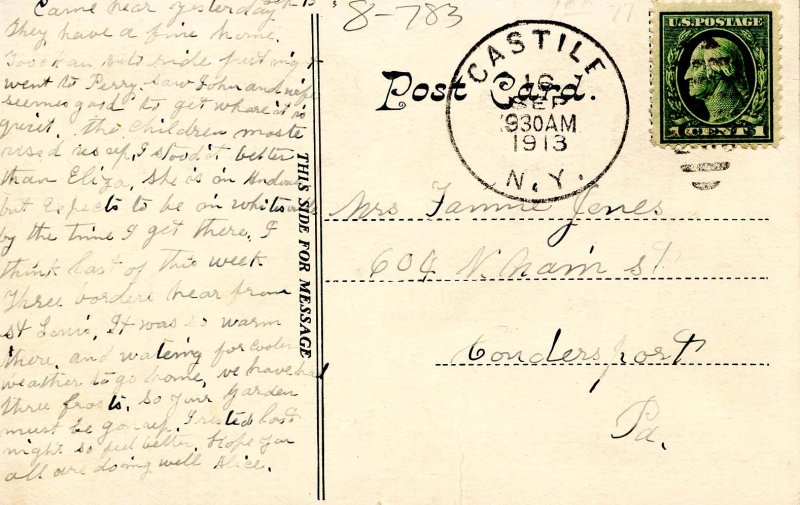 Came hear yesterday Sep 15
They have a fine home,
Took an auto ride last night
went to Perry. Saw John and wife
seemes good to get whare it is
quiet. The children moste
used us up, I stood it better
than Eliza. She is in
but expects to be in whitesville
by the time I get there, I
think last of this week
Three borders hear from
st Louis, It was so warm
there, and waiteing for cooler
weather to go home, we have had
three frosts. So your garden
must be gon up. I rested last
night so feel better. Hope you
all are doing well Alice.
THIS SIDE FOR MESSAGE
8-783
Post Card.
CASTILE
16
SEP
930AM
1913
N.Y.
U.S. POSTAGE
1 CENT 1
Mrs Fannie Jones
604 N. Main st
Coudersport
Pa.